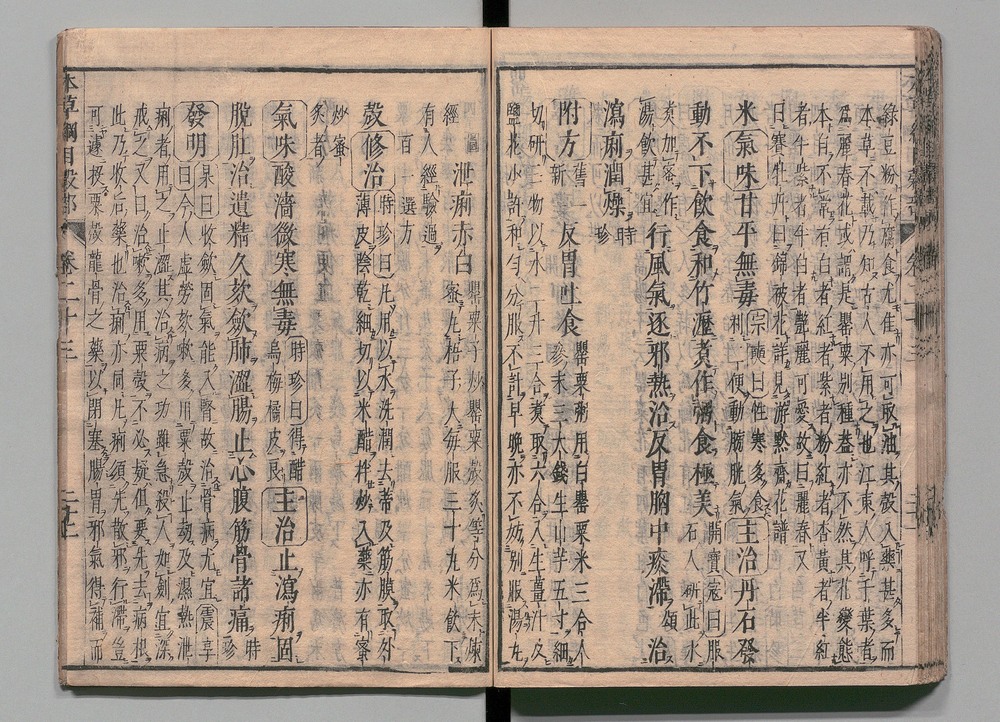 綠豆粉作腐食尤佳亦可取油其殻入藥甚多而
本草不載乃知古人不用之也江東人呼千葉者
爲麗春花或謂是罌粟別種葢亦不然其花變態
本自不常有白者紅者紫者粉紅者杏黃者半紅
者半紫者半白者艷麗可愛故曰麗春又
曰賽牡丹曰錦被花詳見游默齋花譜
米氣味甘平無毒宗奭曰性寒多食利二便動膀胱氣主治丹石發
動不下飲食和竹瀝煮作粥食極美開寶寇曰服石人研此水
煮加蜜作湯飲甚宜行風氣逐邪熱治反胃胸中痰滯頌治
瀉痢潤燥時珍
附方舊一新一反胃吐食罌粟粥用白罌粟米三合人參末三大錢生山芋五寸細
切研三物以水一升二合煮取六合入生薑汁及
鹽花少許和勻分服不計早晚亦不妨別服湯丸
泄痢赤白罌粟子炒罌粟殻炙等分爲末煉蜜丸梧子大每服三十丸米飲下
經有人經驗過
百一選方
殻修治時珍曰凡用以水洗潤去蒂及筋膜取外薄皮陰乾細切以米醋拌炒入藥亦有蜜
炒蜜炙者
氣味酸濇微寒無毒時珍曰得醋烏梅橘皮良主治止瀉痢固
脫肛治遺精久欬斂肺澀腸止心腹筋骨諸痛時珍
發明杲曰收斂固氣能入腎故治骨病尤宜震亨曰今人虛勞欬嗽多用粟殻止劫及濕熱泄
痢者用之止澀其治病之功雖急殺人如劍宜深
戒之又曰治嗽多用粟殻不必疑但要先去病根
此乃收后藥也治痢亦同凡痢須先散邪行滯豈
可遽投粟殻龍骨之藥以閉塞腸胃邪氣得補而
本草綱目穀部
卷二十三
二十三